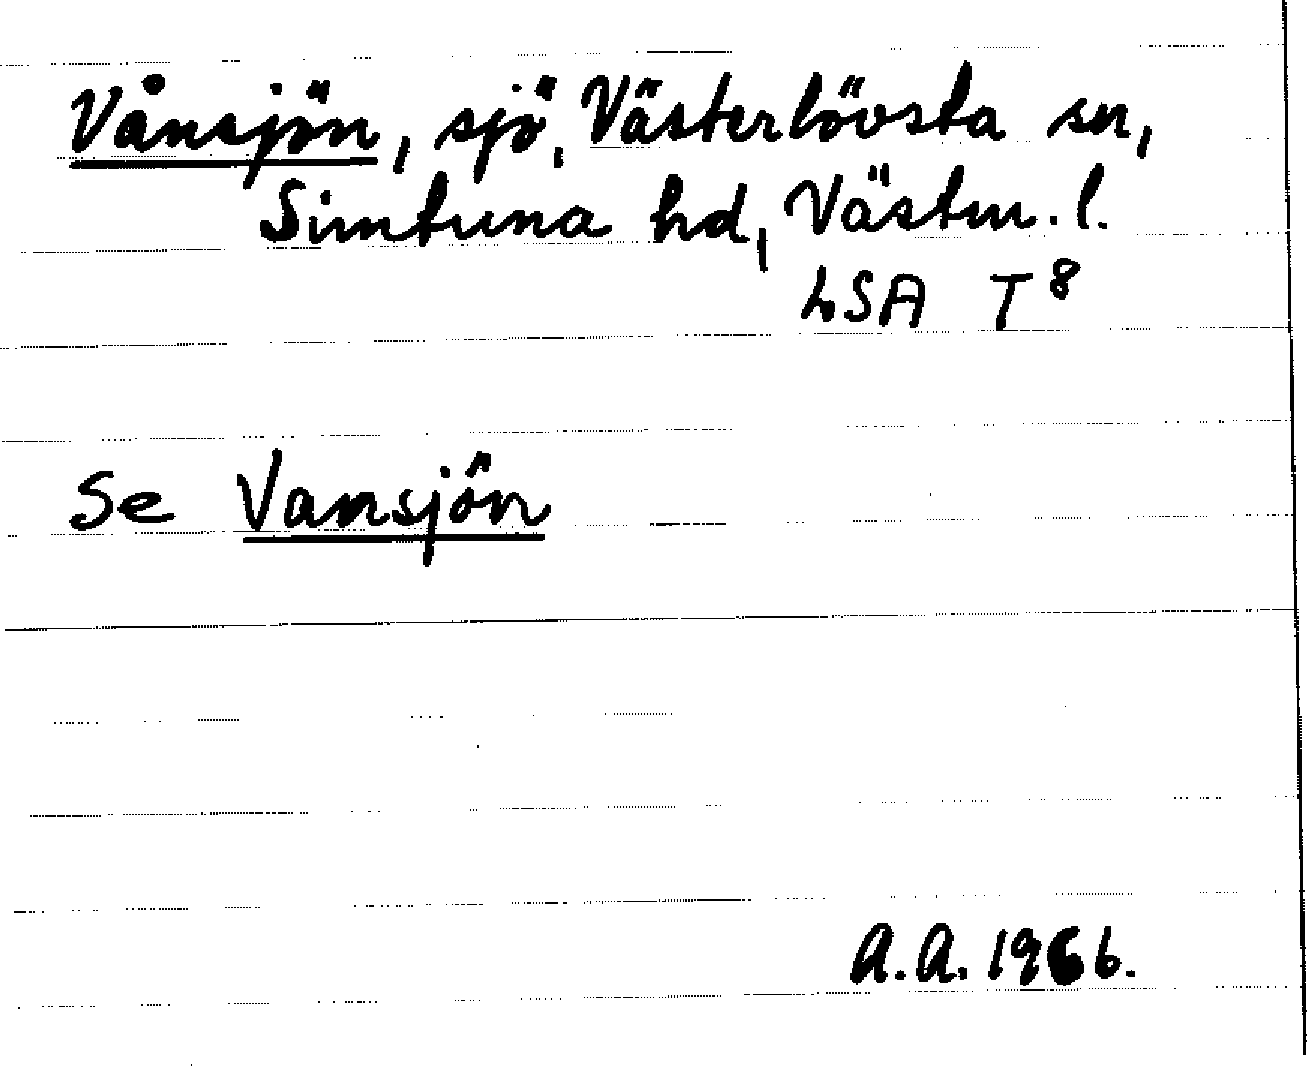 Vånsjön, sjö, Västerlövsta sn,
Simtuna hd, Västm. l.
LSA T 8
Se Vansjön
A.A. 1966.